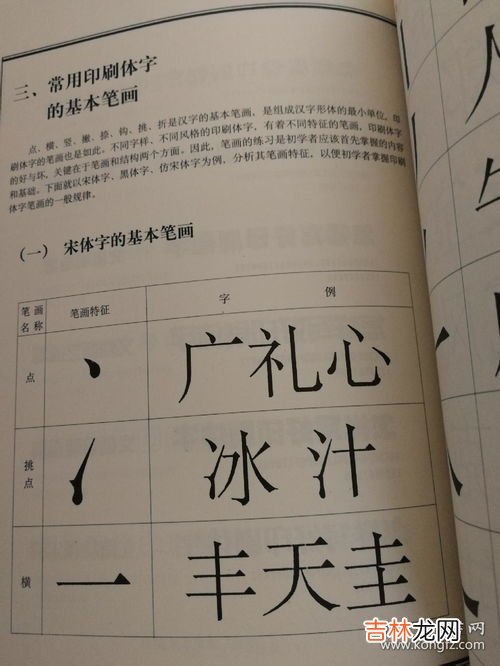 三、常用印刷体字
的基本笔画
点、横、竖、撇、捺、钩、挑、折是汉字的基本笔画，是组成汉字形体的最小单位，印
刷体字的笔画也是如此。不同字样、不同风格的印刷体字，有着不同特征的笔画，印刷体字
的好与坏，关键在于笔画和结构两个方面。因此，笔画的练习是初学者应该首先掌握的内容
和基础。下面就以宋体字、黑体字、仿宋体字为例，分析其笔画特征，以便初学者掌握印刷
体字笔画的一般规律。
（一） 宋体字的基本笔画
笔画名称 笔画特征 字 例
点 丶 广礼心
挑点 冰汁
横 一 丰天圭
吉林龙网
www.kongfz.com